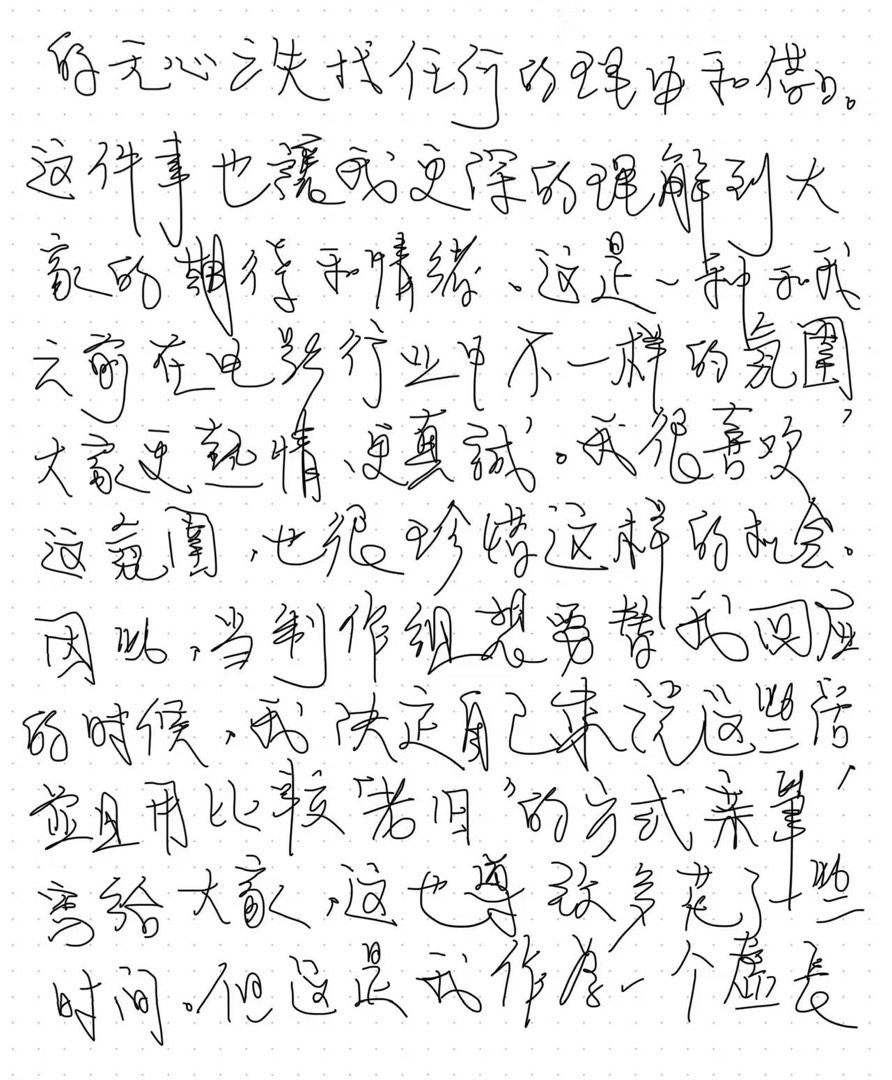 的无心之失找任何的理由和借口。
这件事也讓我更深的理解到大
家的期待和情緒、这是一种和我
之前在电影行业中不一样的氛圍
大家更热情、更真誠。我很喜欢
这氛圍，也很珍惜这样的机会。
因此，当制作组想要替我回应
的时候，我决定自己来说这些话
並且用比較“老旧”的方式亲筆
寫给大家，这也導致多花了一些
时间。但这是我作为一个虛長